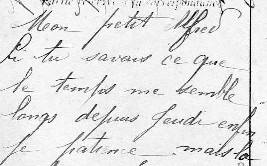 Mon petit Alfred
Si tu savais ce que
le temps me semble
longs depuis Jeudi enfin
je patience mais la